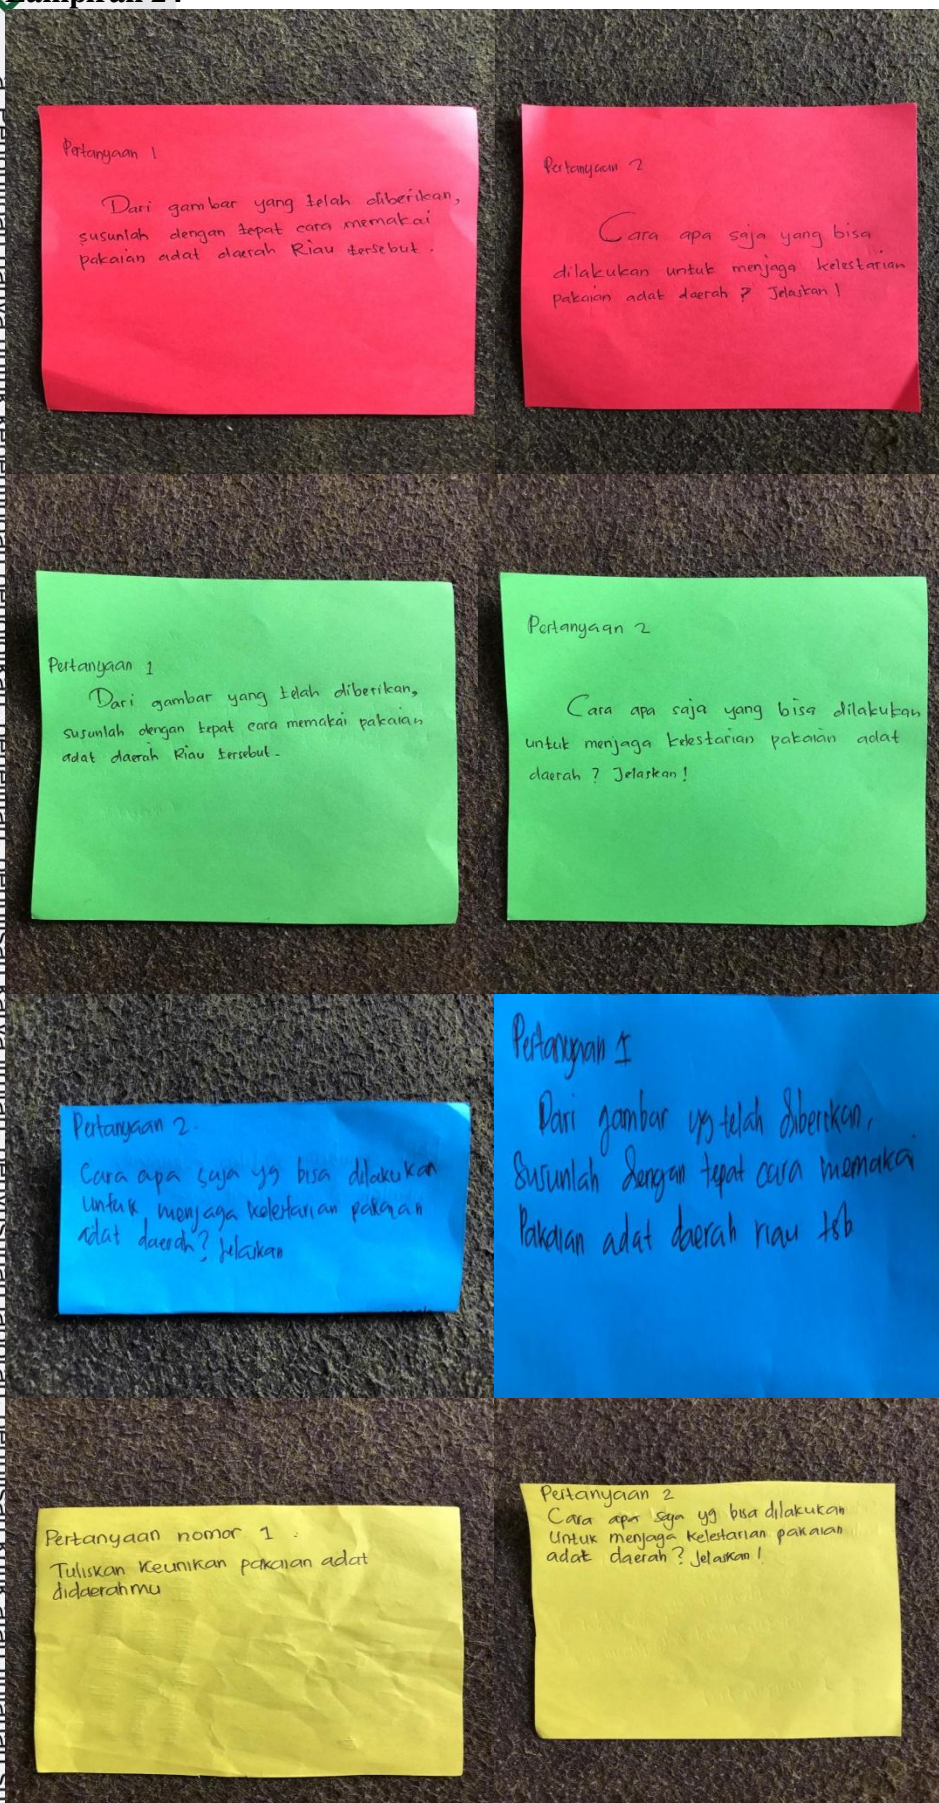 Lampiran 24
Pertanyaan 1
Dari gambar yang telah diberikan,
susunlah dengan tepat cara memakai
pakaian adat daerah Riau tersebut.
Pertanyaan 2
Cara apa saja yang bisa
dilakukan untuk menjaga kelestarian
pakaian adat daerah? Jelaskan!
Pertanyaan 1
Dari gambar yang telah diberikan,
susunlah dengan tepat cara memakai pakaian
adat daerah Riau tersebut.
Pertanyaan 2
Cara apa saja yang bisa dilakukan
untuk menjaga kelestarian pakaian adat
daerah? Jelaskan!
Pertanyaan 2.
Cara apa saja yg bisa dilakukan
untuk menjaga kelestarian pakaian
adat daerah? Jelaskan
Pertanyaan 1
Dari gambar yg telah diberikan,
Susunlah dengan tepat cara memakai
Pakaian adat daerah riau tsb
Pertanyaan nomor 1.
Tuliskan keunikan pakaian adat
didaerahmu
Pertanyaan 2
Cara apa saja yg bisa dilakukan
untuk menjaga kelestarian pakaian
adat daerah? Jelaskan!